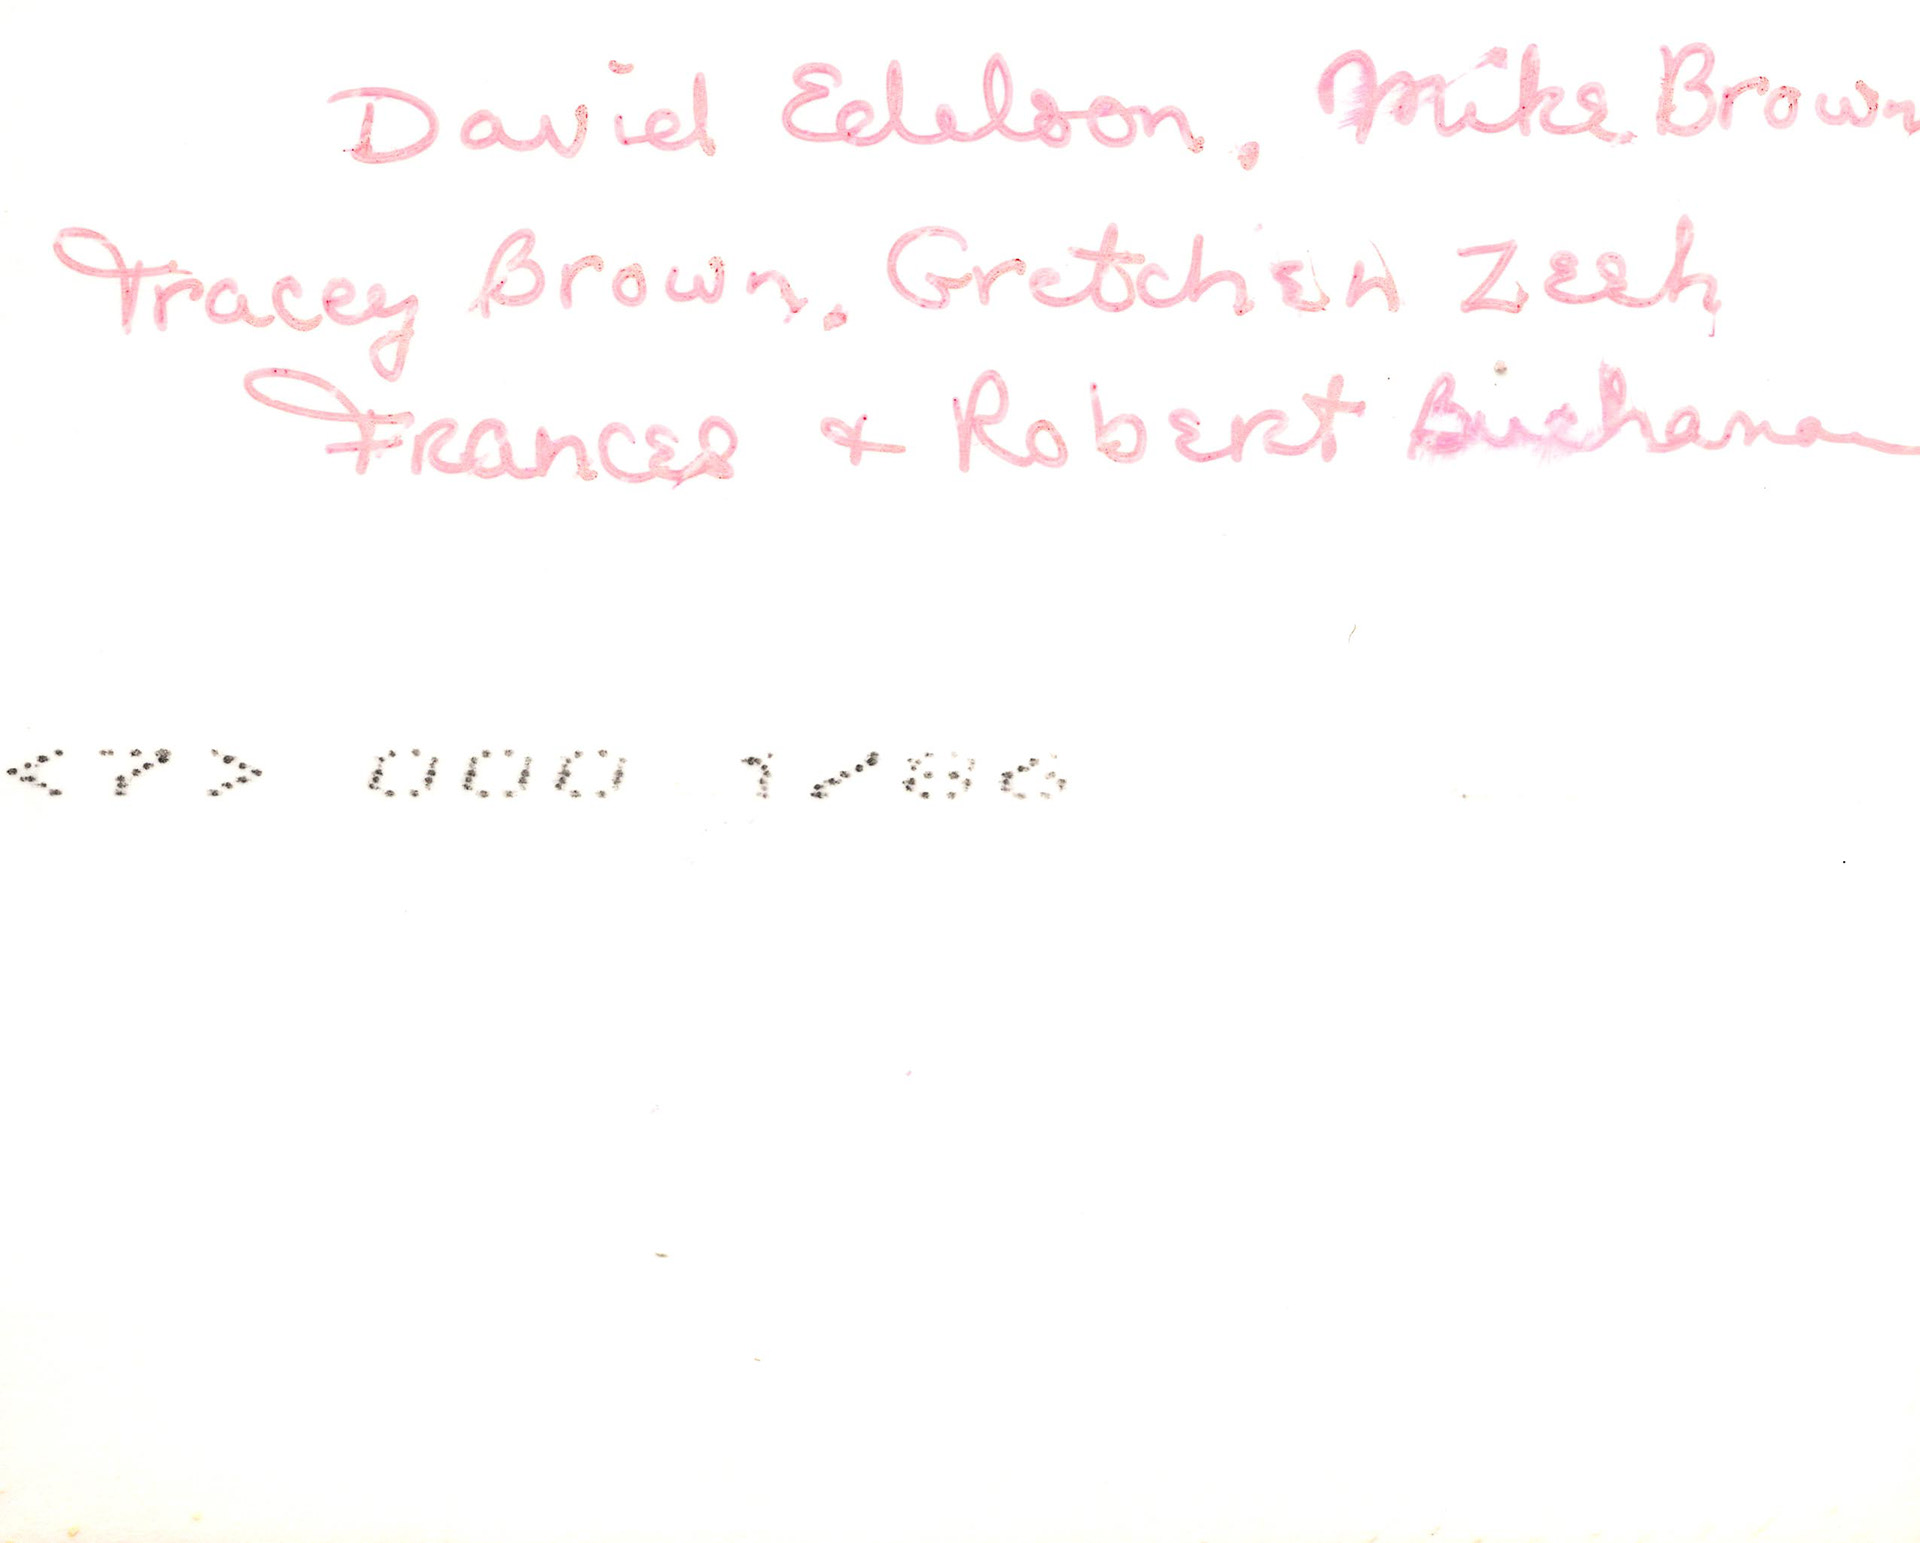 David Edelson, Mike Brown
Tracey Brown, Gretchen Zeeh
Frances + Robert Buchanan
<7> 000 1/86